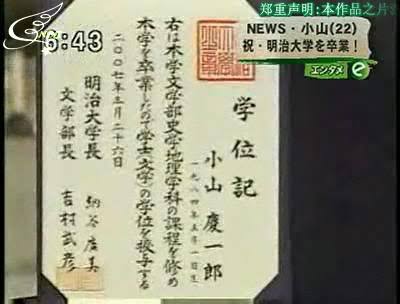 郑重声明:本作品之片
6:43
NEWS・小山(22)
祝・明治大学を卒業!
エンタメ e
学位記
小山慶一郎
一九八四年五月一日生
右は本学文学部史学地理学科の課程を修め
本学を卒業したので学士(文学)の学位を授与する
二〇〇七年三月二十六日
明治大学長 納谷廣美
文学部長 吉村武彦